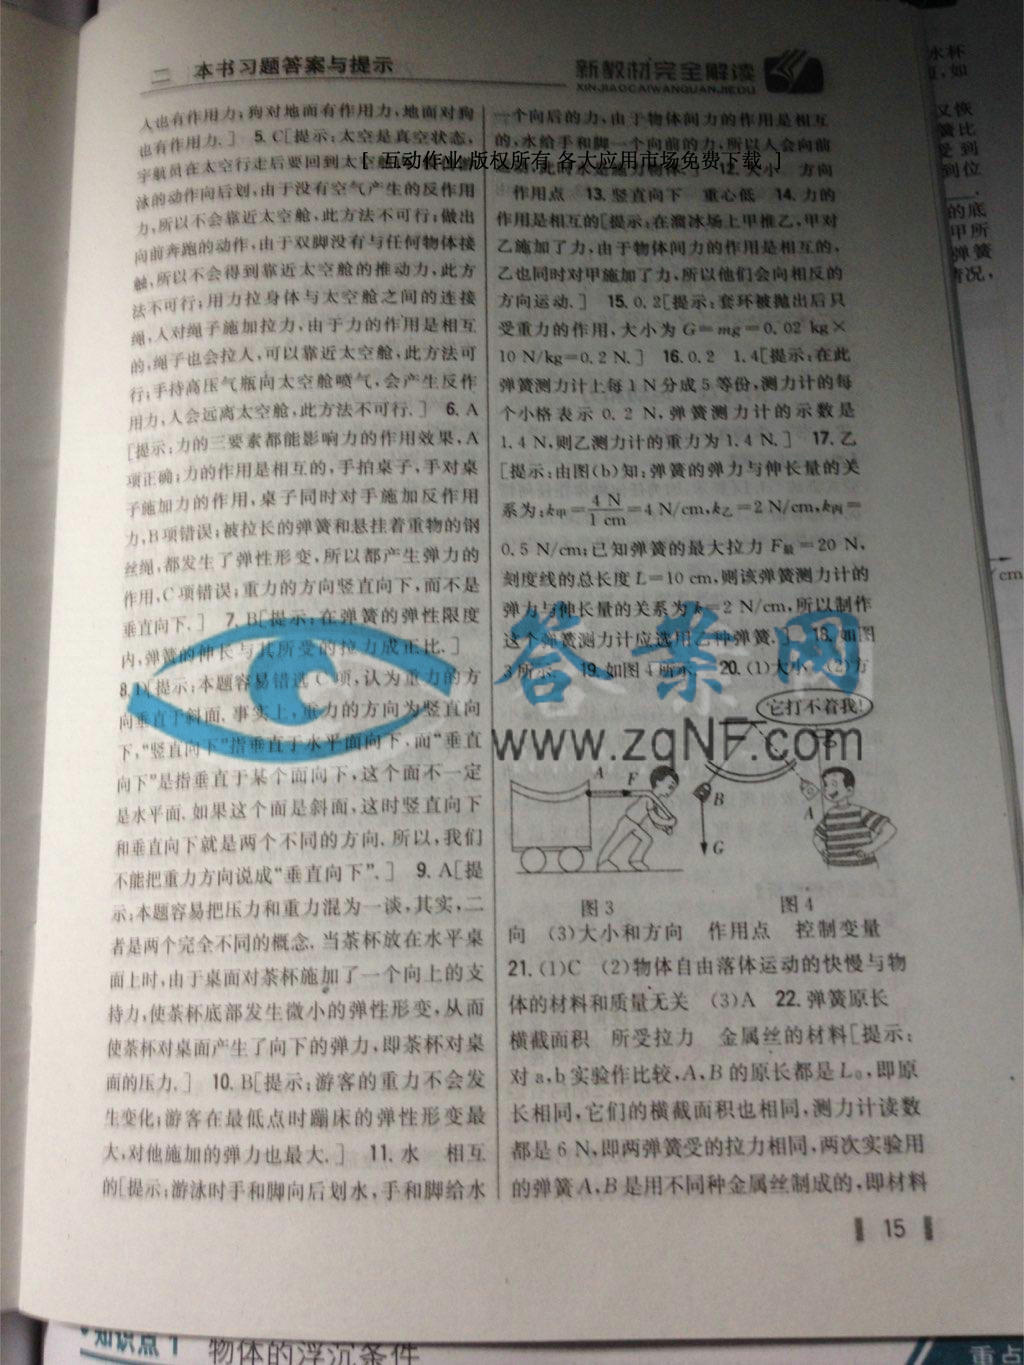 二 本书习题答案与提示
新教材完全解读
XINJIAOCAIWANQUANJIEDU
人也有作用力；狗对地面有作用力，地面对狗
也有作用力.］ 5. C［提示：太空是真空状态，
宇航员在太空行走后要回到太空
泳的动作向后划，由于没有空气产生的反作用
力，所以不会靠近太空舱，此方法不可行；做出
向前奔跑的动作，由于双脚没有与任何物体接
触，所以不会得到靠近太空舱的推动力，此方
法不可行；用力拉身体与太空舱之间的连接
绳，人对绳子施加拉力，由于力的作用是相互
的，绳子也会拉人，可以靠近太空舱，此方法可
行；手持高压气瓶向太空舱喷气，会产生反作
用力，人会远离太空舱，此方法不可行.］ 6. A
［提示：力的三要素都能影响力的作用效果，A
项正确；力的作用是相互的，手拍桌子，手对桌
子施加力的作用，桌子同时对手施加反作用
力，B项错误；被拉长的弹簧和悬挂着重物的钢
丝绳，都发生了弹性形变，所以都产生弹力的
作用，C项错误；重力的方向竖直向下，而不是
垂直向下.］ 7. B［提示：在弹簧的弹性限度
内，弹簧的伸长与其所受的拉力成正比.］
8. D［提示：本题容易错选C项，认为重力的方
向垂直于斜面.事实上，重力的方向为竖直向
下，“竖直向下”指垂直于水平面向下，而“垂直
向下”是指垂直于某个面向下，这个面不一定
是水平面.如果这个面是斜面，这时竖直向下
和垂直向下就是两个不同的方向.所以，我们
不能把重力方向说成“垂直向下”.］ 9. A［提
示：本题容易把压力和重力混为一谈，其实，二
者是两个完全不同的概念.当茶杯放在水平桌
面上时，由于桌面对茶杯施加了一个向上的支
持力，使茶杯底部发生微小的弹性形变，从而
使茶杯对桌面产生了向下的弹力，即茶杯对桌
面的压力.］ 10. B［提示：游客的重力不会发
生变化；游客在最低点时蹦床的弹性形变最
大，对他施加的弹力也最大.］ 11. 水 相互
的［提示：游泳时手和脚向后划水，手和脚给水
一个向后的力，由于物体间力的作用是相互
的，水给手和脚一个向前的力，所以人会向前
［ 互动作业 版权所有 各大应用市场免费下载 ］
12. 大小 方向
作用点 13. 竖直向下 重心低 14. 力的
作用是相互的［提示：在溜冰场上甲推乙，甲对
乙施加了力，由于物体间力的作用是相互的，
乙也同时对甲施加了力，所以他们会向相反的
方向运动.］ 15. 0.2［提示：套环被抛出后只
受重力的作用，大小为G＝mg＝0.02 kg×
10 N/kg＝0.2 N.］ 16. 0.2 1.4［提示：在此
弹簧测力计上每1 N分成5等份，测力计的每
个小格表示0.2 N，弹簧测力计的示数是
1.4 N，则乙测力计的重力为1.4 N.］ 17. 乙
［提示：由图(b)知：弹簧的弹力与伸长量的关
系为：k甲＝4 N/1 cm＝4 N/cm，k乙＝2 N/cm，k丙＝
0.5 N/cm；已知弹簧的最大拉力F最＝20 N，
刻度线的总长度L＝10 cm，则该弹簧测力计的
弹力与伸长量的关系为k＝2 N/cm，所以制作
这个弹簧测力计应选用乙种弹簧.］ 18. 如图
3所示. 19. 如图4所示. 20. (1)大小 (2)方
答案网
www.zqNF.com
它打不着我！
A F
B
A
G
图3
图4
向 (3)大小和方向 作用点 控制变量
21. (1)C (2)物体自由落体运动的快慢与物
体的材料和质量无关 (3)A 22. 弹簧原长
横截面积 所受拉力 金属丝的材料［提示：
对a、b实验作比较，A、B的原长都是L₀，即原
长相同，它们的横截面积也相同，测力计读数
都是6 N，即两弹簧受的拉力相同，两次实验用
的弹簧A、B是用不同种金属丝制成的，即材料
15
水杯
如
又恢
簧比
受到
到位
的底
甲所
弹簧
情况，
cm
知识点1 物体的浮沉条件
重点